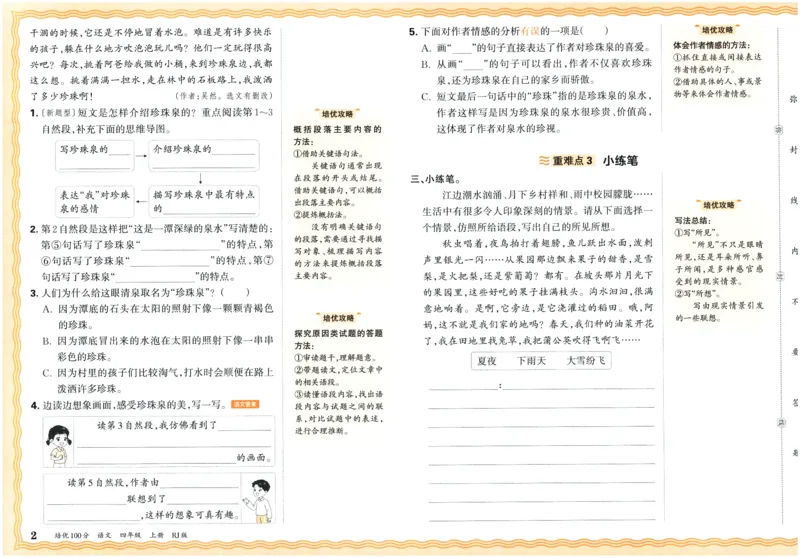 干涸的时候,它还是不停地冒着水泡。难道是有许多快乐
的孩子,躲在什么地方吹泡泡玩儿吗?他们一定玩得很高
兴吧?每次,挑着阿爸给我做的小桶,来到珍珠泉边,我都
这么想。挑着满满一担水,走在林中的石板路上,我泼洒
了多少珍珠啊!(作者:吴然。选文有删改)
1.〔新题型〕短文是怎样介绍珍珠泉的?重点阅读第1~3
自然段,补充下面的思维导图。
写珍珠泉的____ → 介绍珍珠泉的____
表达“我”对珍珠泉的感情
描写珍珠泉中最有特点的____
2.第2自然段是这样把“这是一潭深绿的泉水”写清楚的:
第⑤句话写了珍珠泉“____”的特点,第
⑥句话写了珍珠泉“____”的特点,第⑦
句话写了珍珠泉“____”的特点。
3.人们为什么给这眼清泉取名为“珍珠泉”?( )
A. 因为潭底的石头在太阳的照射下像一颗颗青褐色
的珍珠。
B. 因为潭底冒出来的水泡在太阳的照射下像一串串
彩色的珍珠。
C. 因为村里的孩子们比较淘气,打水时会顺便在路上
泼洒许多珍珠。
4.边读边想象画面,感受珍珠泉的美,写一写。
读第3自然段,我仿佛看到了____
____的画面。
读第5自然段,作者由____
____联想到了____
____,这样的想象可真有趣。
2 培优100分 语文 四年级 上册 RJ版
培优攻略
概括段落主要内容的
方法:
①借助关键语句法。
关键语句通常出现
在段落的开头或结尾。
借助关键语句,可以概括
出段落主要内容。
②提炼概括法。
没有明确关键语句
的段落,需要通过寻找描
写对象、梳理描写内容
的方法来提炼概括段落
主要内容。
培优攻略
探究原因类试题的答题
方法:
①审读题干,理解题意。
②带题读文,定位文章中
的相关语段。
③读懂语段内容,找出语
段内容与试题之间的联
系,对比试题中的表述,
进行合理推断。
5.下面对作者情感的分析有误的一项是( )
A. 画“____”的句子直接表达了作者对珍珠泉的喜爱。
B. 从画“____”的句子可以看出,作者不仅喜欢珍珠
泉,还为珍珠泉在自己的家乡而骄傲。
C. 短文最后一句话中的“珍珠”指的是珍珠泉的泉水,
作者这样写是因为珍珠泉的泉水很珍贵、价值高,
这体现了作者对泉水的珍视。
重难点3 小练笔
三、小练笔。
江边潮水汹涌、月下乡村祥和、雨中校园朦胧……
生活中有很多令人印象深刻的情景。请从下面选择一
个情景,仿照所给语段,写出自己的所见所想。
秋虫唱着,夜鸟拍打着翅膀,鱼儿跃出水面,泼剌
声里银光一闪……从果园那边飘来果子的甜香,是雪
梨,是火把梨,还是紫葡萄?都有。在坡头那片月光下
的果园里,这些好吃的果子挂满枝头。沟水汩汩,很满
意地响着。是啊,它旁边,是它浇灌过的稻田。哦,阿
妈,这不就是我们家的地吗?春天,我们种的油菜开花
了,我在田地里找兔草,我把蒲公英吹得飞啊飞……
夏夜 下雨天 大雪纷飞
:
培优攻略
体会作者情感的方法:
①抓住直接或间接表达
作者情感的句子。
②借助具体的人、事或景
物等来体会作者情感。
培优攻略
写法总结:
①写“所见”。
“所见”不只是眼睛
所见,还是耳朵所听、鼻
子所闻,是多种感官感
受到的现实情景。
②写“所想”。
写由现实情景引发
的一些联想。
弥
封
线
内
不
要
答